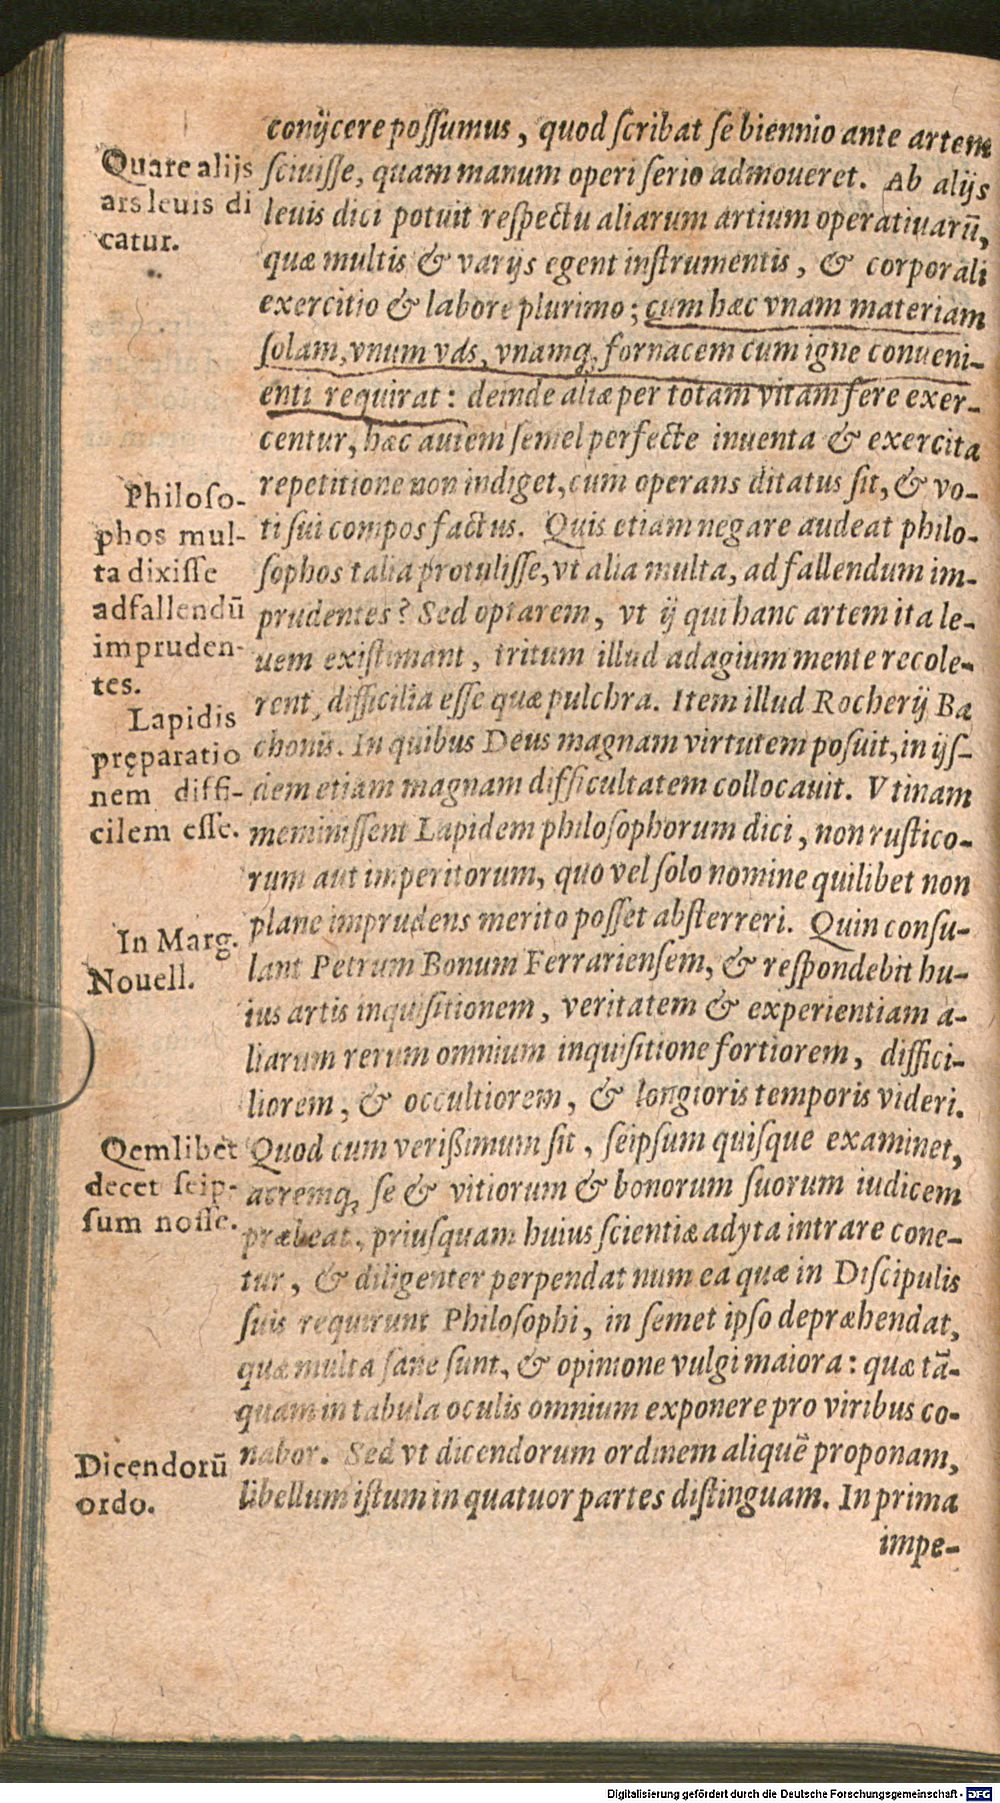 conijcere poſſumus, quod ſcribat ſe biennio ante artem
Quare alijs
ars leuis di
catur.
ſciuiſſe, quam manum operi ſerio admoueret. Ab alijs
leuis dici potuit reſpectu aliarum artium operatiuarū,
quæ multis & varijs egent inſtrumentis, & corporali
exercitio & labore plurimo; cum hæc vnam materiam
ſolam, vnum vas, vnamq́, fornacem cum igne conueni-
enti requirat: deinde aliæ per totam vitam fere exer-
centur, hæc autem ſemel perfecte inuenta & exercita
repetitione non indiget, cum operans ditatus ſit, & vo-
Philoſo-
phos mul-
ta dixiſſe
ad fallendū
impruden-
tes.
ti ſui compos factus. Quis etiam negare audeat philo-
ſophos talia protuliſſe, vt alia multa, ad fallendum im-
prudentes? Sed optarem, vt ij qui hanc artem ita le-
uem exiſtimant, tritum illud adagium mente recole-
rent, difficilia eſſe quæ pulchra. Item illud Rocherij Ba
Lapidis
pręparatio
nem diffi-
cilem eſſe.
chonis. In quibus Deus magnam virtutem poſuit, in ijſ-
dem etiam magnam difficultatem collocauit. Vtinam
meminiſſent Lapidem philoſophorum dici, non ruſtico-
rum aut imperitorum, quo vel ſolo nomine quilibet non
plane imprudens merito poſſet abſterreri. Quin conſu-
In Marg.
Nouell.
lant Petrum Bonum Ferrarienſem, & reſpondebit hu-
ius artis inquiſitionem, veritatem & experientiam a-
liarum rerum omnium inquiſitione fortiorem, diffici-
liorem, & occultiorem, & longioris temporis videri.
Qemlibet
decet ſeip-
ſum noſſe.
Quod cum verißimum ſit, ſeipſum quiſque examinet,
acremq́, ſe & vitiorum & bonorum ſuorum iudicem
præbeat, priuſquam huius ſcientiæ adyta intrare cone-
tur, & diligenter perpendat num ea quæ in Diſcipulis
ſuis requirunt Philoſophi, in ſemet ipſo depræhendat,
quæ multa ſane ſunt, & opinione vulgi maiora: quæ tā-
quam in tabula oculis omnium exponere pro viribus co-
Dicendorū
ordo.
nabor. Sed vt dicendorum ordinem aliquē proponam,
libellum iſtum in quatuor partes diſtinguam. In prima
impe-
Digitalisierung gefördert durch die Deutsche Forschungsgemeinschaft - DFG